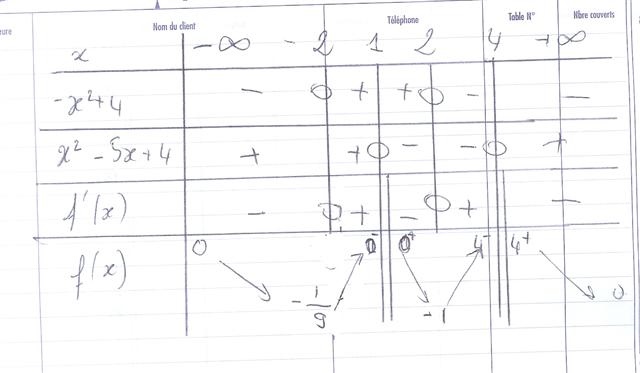 eure Nom du client Téléphone Table N° Nbre couverts
x -∞ -2 1 2 4 +∞
-x²+4 - 0 + + 0 - -
x² - 5x+4 + + 0 - - 0 +
f'(x) - 0 + - 0 + -
f(x) 0 -1/9 0⁻ 0⁺ -1 4⁻ 4⁺ 0